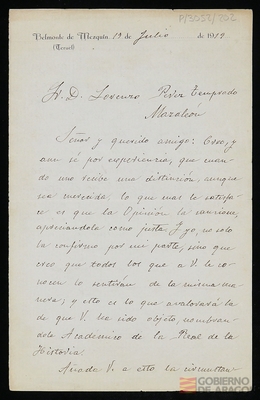 P/3057/202
Belmonte de Mezquín 19 de Julio de 1919
(Teruel)
Sr. D. Lorenzo Pérez Temprado
Mazaleón
Señor y querido amigo: Creo, y
aun sé por experiencia, que cuan-
do uno recibe una distinción, aunque
sea merecida, lo que mas le satisfa-
ce es que la Opinión la sancione,
apreciándola como justa. Y yo, no solo
la confirmo por mi parte, sino que
creo que todos los que a V. le co-
nocen lo sentirán de la misma ma-
nera; y esto es lo que avalorará la
de que V. ha sido objeto, nombran-
dole Academico de la Real de la
Historia.
Añada V. a esto la circunstan-
GOBIERNO
DE ARAGON